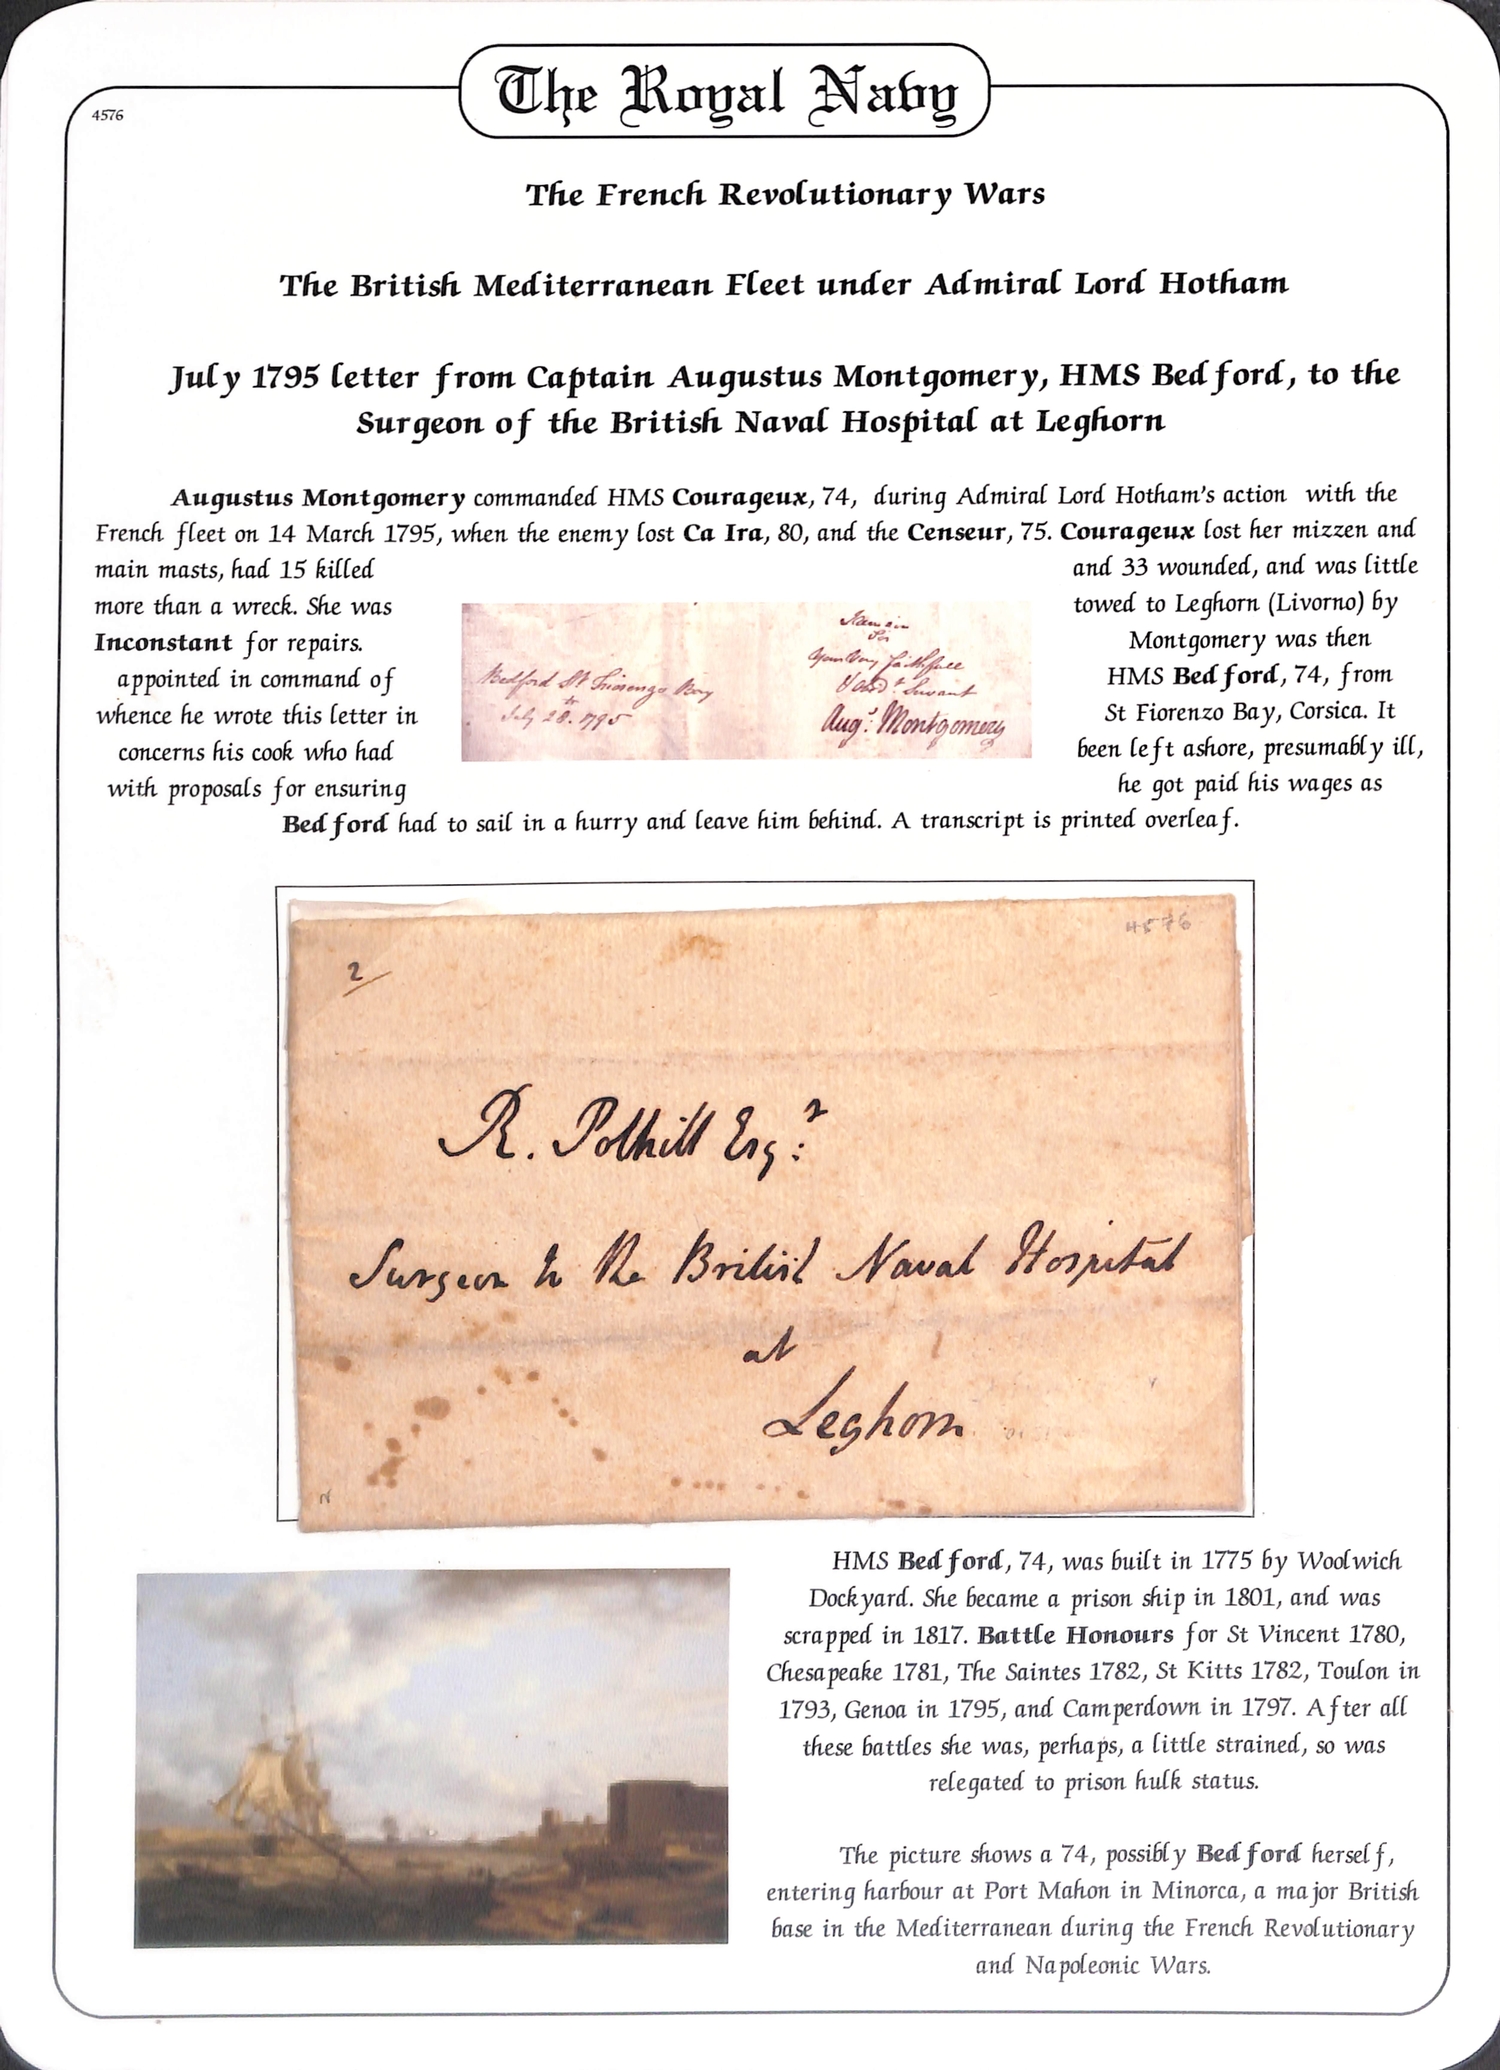 The Royal Navy
4576
The French Revolutionary Wars
The British Mediterranean Fleet under Admiral Lord Hotham
July 1795 letter from Captain Augustus Montgomery, HMS Bedford, to the
Surgeon of the British Naval Hospital at Leghorn
Augustus Montgomery commanded HMS Courageux, 74, during Admiral Lord Hotham's action with the
French fleet on 14 March 1795, when the enemy lost Ca Ira, 80, and the Censeur, 75. Courageux lost her mizzen and
main masts, had 15 killed and 33 wounded, and was little
more than a wreck. She was towed to Leghorn (Livorno) by
Inconstant for repairs. Montgomery was then
appointed in command of HMS Bedford, 74, from
whence he wrote this letter in St Fiorenzo Bay, Corsica. It
concerns his cook who had been left ashore, presumably ill,
with proposals for ensuring he got paid his wages as
Bedford had to sail in a hurry and leave him behind. A transcript is printed overleaf.
Remain
Sir
Your Very faithfull
Servant
Augs. Montgomery
Bedford St Fiorenzo Bay
July 28th. 1795
4576
2
R. Polhill Esqr:
Surgeon to the British Naval Hospital
at
Leghorn
HMS Bedford, 74, was built in 1775 by Woolwich
Dockyard. She became a prison ship in 1801, and was
scrapped in 1817. Battle Honours for St Vincent 1780,
Chesapeake 1781, The Saintes 1782, St Kitts 1782, Toulon in
1793, Genoa in 1795, and Camperdown in 1797. After all
these battles she was, perhaps, a little strained, so was
relegated to prison hulk status.
The picture shows a 74, possibly Bedford herself,
entering harbour at Port Mahon in Minorca, a major British
base in the Mediterranean during the French Revolutionary
and Napoleonic Wars.